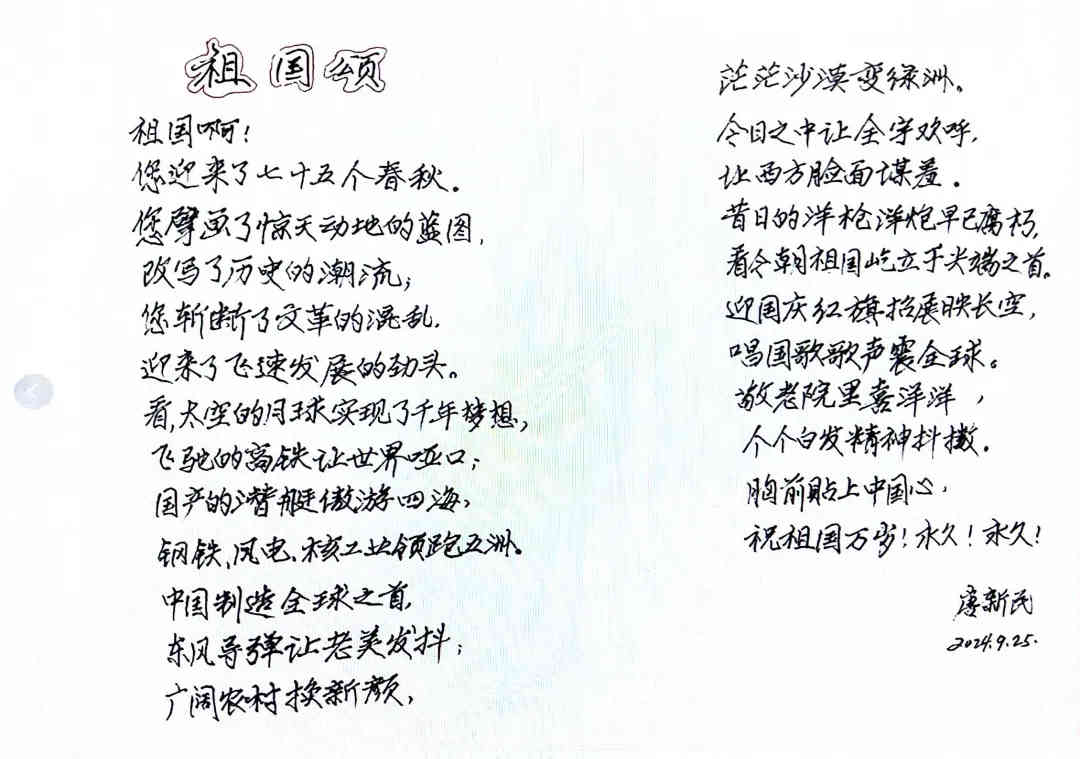 祖国颂
祖国啊!
您迎来了七十五个春秋.
您擘画了惊天动地的蓝图,
改写了历史的潮流;
您斩断了文革的混乱.
迎来了飞速发展的劲头。
看,太空的月球实现了千年梦想,
飞驰的高铁让世界哑口;
国产的潜艇傲游四海,
钢铁、风电、核工业领跑五洲。
中国制造全球之首,
东风导弹让老美发抖;
广阔农村换新颜,
茫茫沙漠变绿洲。
今日之中让全宇欢呼,
让西方脸面谋羞.
昔日的洋枪洋炮早已腐朽,
看今朝祖国屹立于尖端之首。
迎国庆红旗招展映长空,
唱国歌歌声震全球。
敬老院里喜洋洋,
个个白发精神抖擞.
胸前贴上中国心,
祝祖国万岁!永久!永久!
廖新民
2024.9.25.